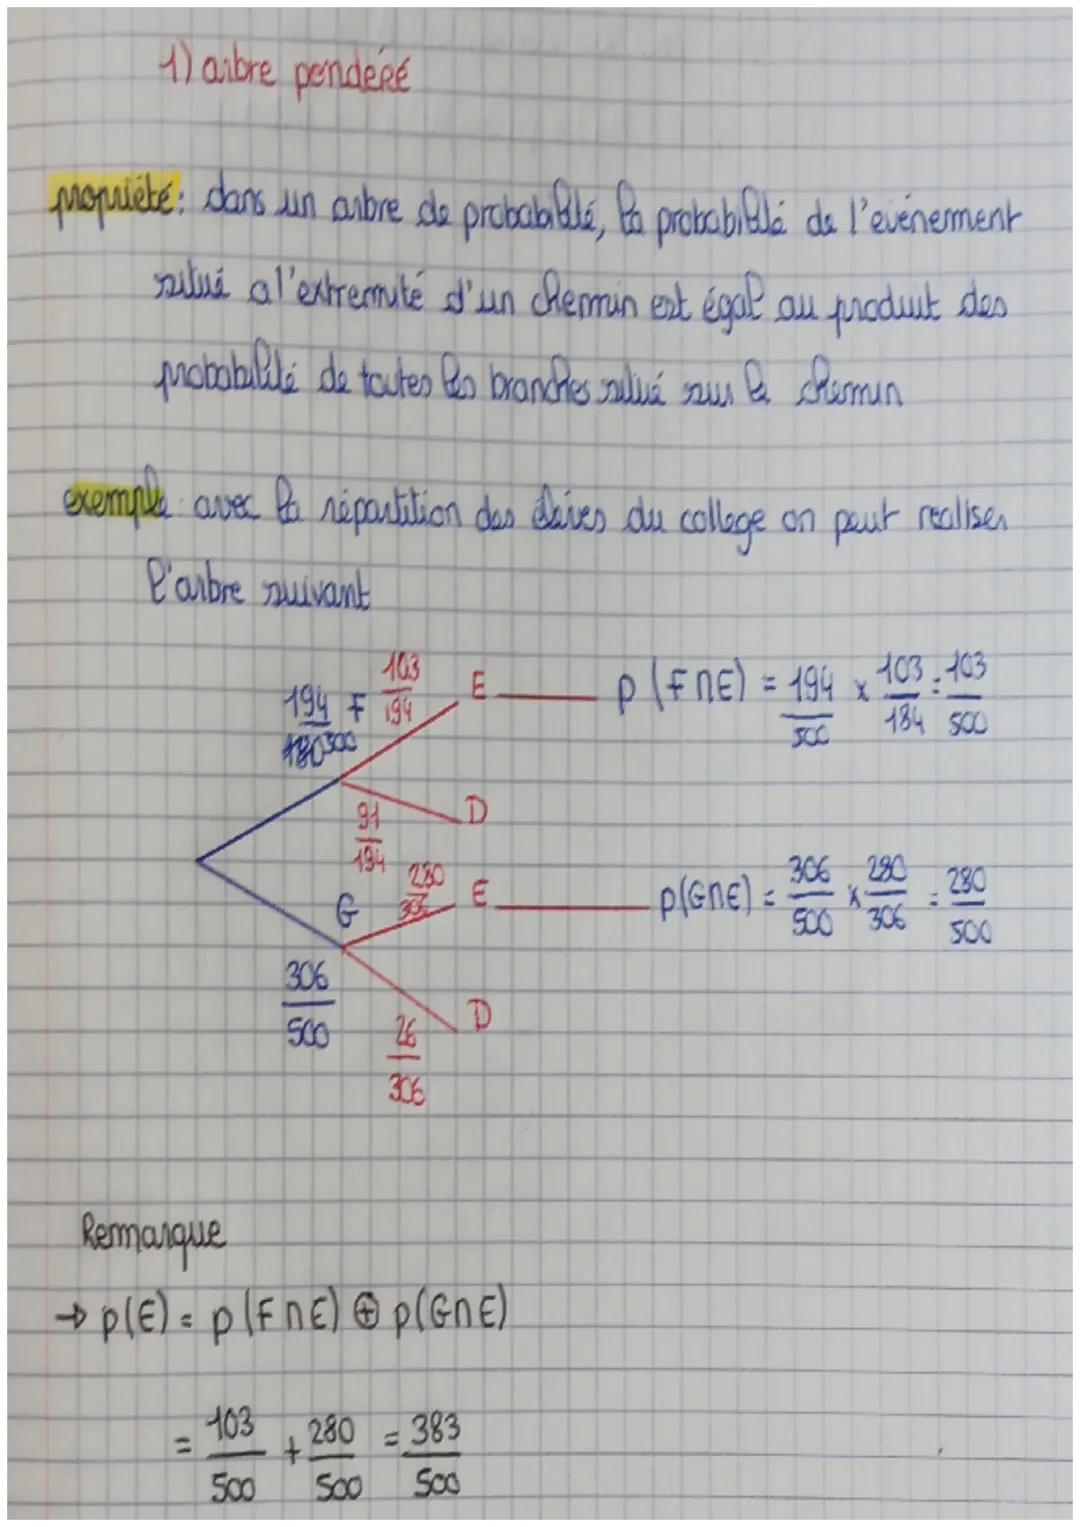 1) arbre pendéré
propriété: dans un arbre de probabilité, la probabilité de l'evénement
situé a l'extremité d'un chemin est égal au produit des
probabilité de toutes les branches situé sur le chemin
exemple: avec la répartition des élèves du college on peut realiser
l'arbre suivant
194/500 F 103/194 E p(F∩E) = 194/500 x 103/184 = 103/500
91/194 D
G 280/306 E p(G∩E) = 306/500 x 280/306 = 280/500
306/500
26/306 D
Remarque
→ p(E) = p(F∩E) ⊕ p(G∩E)
= 103/500 + 280/500 = 383/500